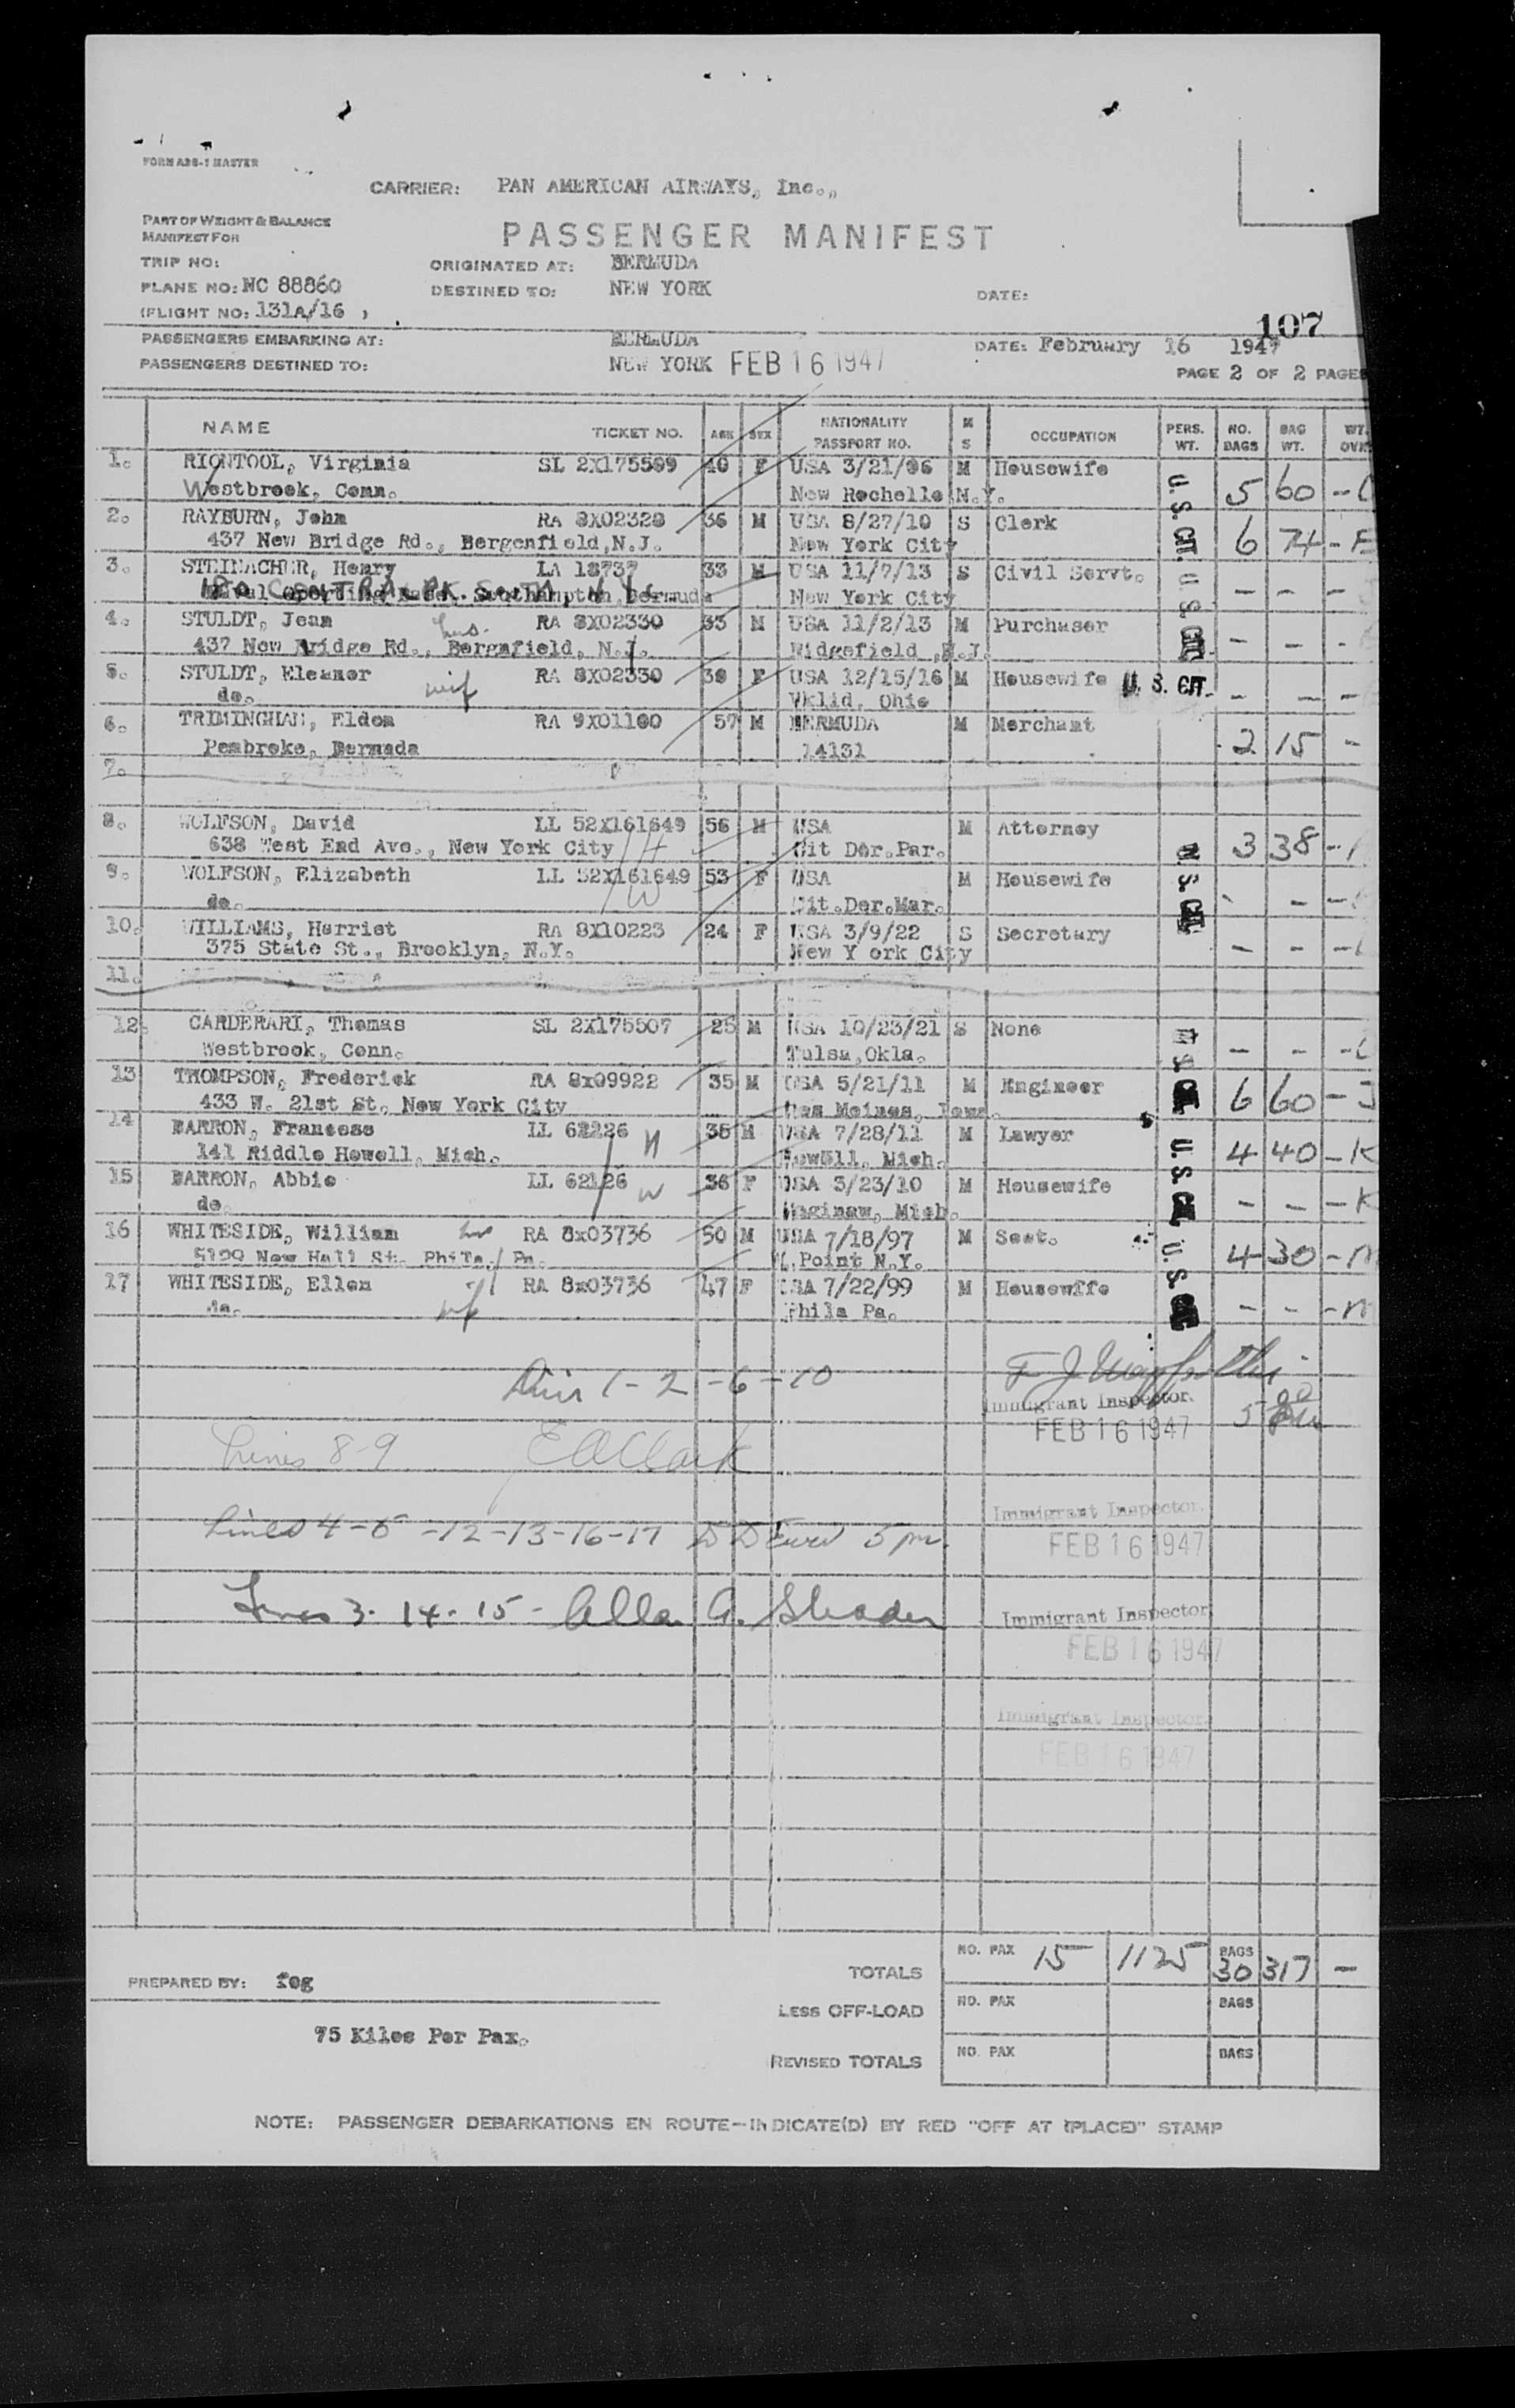 FORM A28-1 MASTER
CARRIER: PAN AMERICAN AIRWAYS, Inc.,
PART OF WEIGHT & BALANCE
MANIFEST FOR
PASSENGER MANIFEST
TRIP NO:
ORIGINATED AT: BERMUDA
PLANE NO: NC 88860
DESTINED TO: NEW YORK
DATE:
(FLIGHT NO: 131A/16 )
107
PASSENGERS EMBARKING AT: BERMUDA
DATE: February 16 1947
PASSENGERS DESTINED TO: NEW YORK FEB 16 1947
PAGE 2 OF 2 PAGES
NAME TICKET NO. AGE SEX NATIONALITY PASSPORT NO. M S OCCUPATION PERS. WT. NO. BAGS BAG WT. WT.
1. RIONTOOL, Virginia SL 2X175509 40 F USA 3/21/06 M Housewife U.S. CIT. 5 60 -
Westbrook, Conn. New Rochelle N.Y.
2. RAYBURN, John RA 8X02328 36 M USA 8/27/10 S Clerk 6 74 -
437 New Bridge Rd., Bergenfield, N.J. New York City
3. STEINACHER, Henry LA 18737 33 M USA 11/7/13 S Civil Servt. U.S. CIT. - - -
180 CENTRAL PK. SOUTH, N.Y.C. Southampton, Bermuda New York City
4. STULDT, Jean hus. RA 8X02330 33 M USA 11/2/13 M Purchaser - - -
437 New Bridge Rd., Bergnfield, N.J. Ridgefield, N.J.
5. STULDT, Eleanor wif RA 8X02330 30 F USA 12/15/16 M Housewife U.S. CIT. - - -
do. Vklid, Ohio
6. TRIMINGHAM, Eldon RA 9X01160 57 M BERMUDA M Merchant 2 15 -
Pembroke, Bermuda 14131
7.
8. WOLFSON, David LL 52X161649 56 M USA M Attorney U.S. CIT. 3 38 -
638 West End Ave., New York City H Cit Der.Par.
9. WOLFSON, Elizabeth LL 52X161649 53 F USA M Housewife - - -
do. W Cit.Der.Mar.
10. WILLIAMS, Harriet RA 8X10223 24 F USA 3/9/22 S Secretary - - -
375 State St., Brooklyn, N.Y. New Y ork City
11.
12. CARDERARI, Thomas SL 2X175507 25 M USA 10/23/21 S None U.S. CIT. - - -
Westbrook, Conn. Tulsa, Okla.
13 THOMPSON, Frederick RA 8x09922 35 M USA 5/21/11 M Engineer 6 60 - J
433 W. 21st St. New York City Des Moines, Iowa.
14 BARRON, Francese LL 62126 H 35 M USA 7/28/11 M Lawyer U.S. CIT. 4 40 - K
141 Riddle Howell, Mich. Howell, Mich.
15 BARRON, Abbie LL 62126 W 36 F USA 3/23/10 M Housewife - - - K
do. Saginaw, Mich.
16 WHITESIDE, William hus RA 8x03736 50 M USA 7/18/97 M Seat. U.S. CIT. 4 30 - M
5129 New Hall St. Phila. Pa. W. Point N.Y.
17 WHITESIDE, Ellen wf RA 8x03736 47 F USA 7/22/99 M Housewife - - - M
do. Phila Pa.
Lines 1-2-6-10
Immigrant Inspector.
FEB 16 1947
Lines 8-9 E A Clark
Immigrant Inspector.
Lines 4-5-12-13-16-17 5 pm.
FEB 16 1947
Lines 3. 14. 15 - Allan G. Shader
Immigrant Inspector
FEB 16 1947
Immigrant Inspector
FEB 16 1947
TOTALS NO. PAX 15 1125 BAGS 30 317 -
PREPARED BY: feg
LESS OFF-LOAD NO. PAX BAGS
75 Kilos Per Pax.
REVISED TOTALS NO. PAX BAGS
NOTE: PASSENGER DEBARKATIONS EN ROUTE—INDICATE(D) BY RED "OFF AT (PLACE)" STAMP